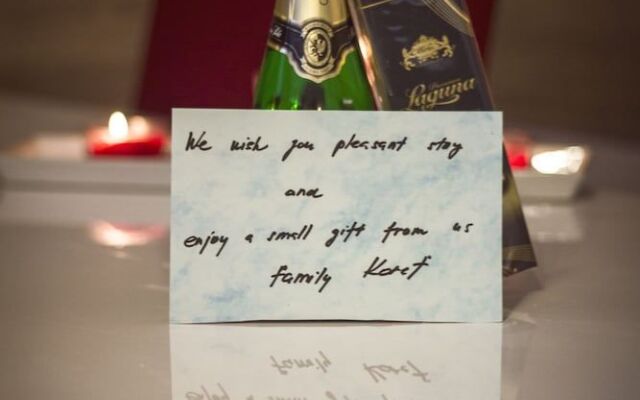 Laguna
We wish you pleasant stay
and
enjoy a small gift from us
family Koref